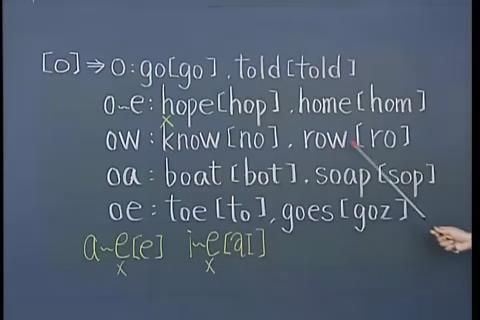 [o] ⇒ o : go[go] , told[told]
o~e : hope[hop] , home[hom]
x
ow : know[no] , row[ro]
oa : boat[bot] , soap[sop]
oe : toe[to] , goes[goz]
a~e[e] i~e[aI]
x x